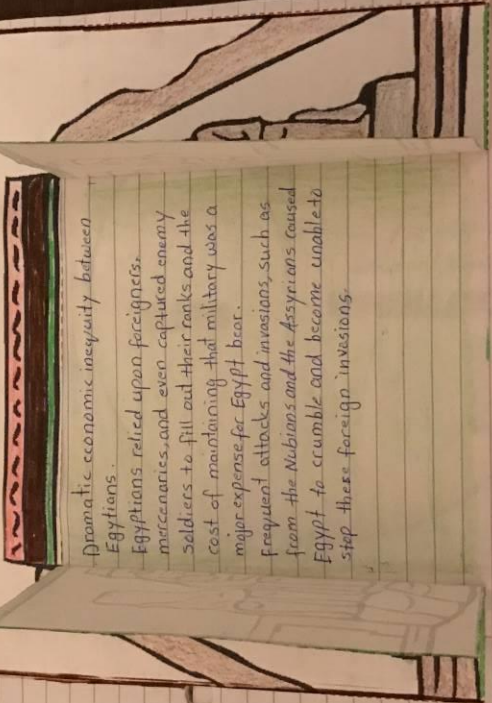 Dramatic economic inequity between
Egytians.
Egyptians relied upon foreigners,
mercenaries, and even captured enemy
soldiers to fill out their ranks and the
cost of maintaining that military was a
major expense for Egypt bear.
Frequent attacks and invasions, such as
from the Nubians and the Assyrians caused
Egypt to crumble and become unable to
stop these foreign invasions.